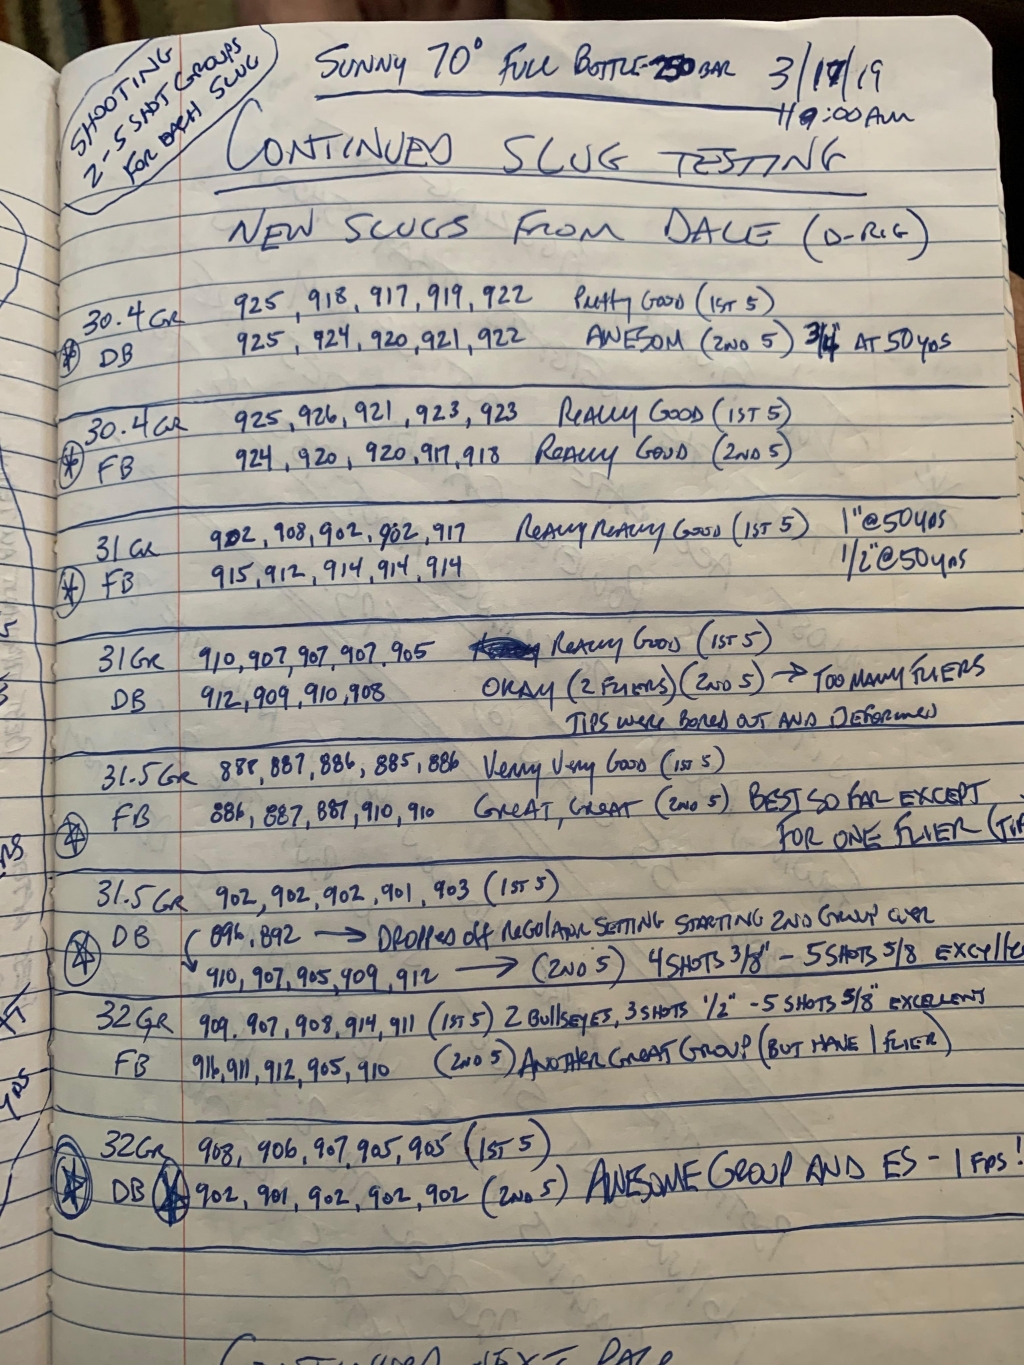 SHOOTING
2-5 SHOT GROUPS
FOR EACH SLUG
SUNNY 70° FULL BOTTLE-250 BAR 3/17/19
9:00AM
CONTINUED SLUG TESTING
NEW SLUGS FROM DALE (D-RIG)
30.4 GR 925, 918, 917, 919, 922 Pretty GOOD (1ST 5)
DB 925, 924, 920, 921, 922 AWESOM (2ND 5) 3/4" AT 50 YDS
30.4 GR 925, 926, 921, 923, 923 REALLY GOOD (1ST 5)
FB 924, 920, 920, 917, 918 REALLY GOOD (2ND 5)
31 GR 902, 908, 902, 902, 917 REALLY REALLY GOOD (1ST 5) 1"@50YDS
FB 915, 912, 914, 914, 914 1/2"@50YDS
31 GR 910, 907, 907, 907, 905 REALLY GOOD (1ST 5)
DB 912, 909, 910, 908 OKAY (2 FLIERS) (2ND 5) → TOO MANY FLIERS
TIPS WERE BORED OUT AND DEFORMED
31.5 GR 888, 887, 886, 885, 886 Verry Very GOOD (1ST 5)
FB 886, 887, 887, 910, 910 GREAT, GREAT (2ND 5) BEST SO FAR EXCEPT
FOR ONE FLIER
31.5 GR 902, 902, 902, 901, 903 (1ST 5)
DB 896, 892 → DROPPED OFF REGULATOR SETTING STARTING 2ND GROUP OVER
910, 907, 905, 909, 912 → (2ND 5) 4 SHOTS 3/8" - 5 SHOTS 5/8
32 GR 909, 907, 908, 914, 911 (1ST 5) 2 BULLSEYES, 3 SHOTS 1/2" - 5 SHOTS 5/8" EXCELLENT
FB 911, 912, 905, 910 (2ND 5) ANOTHER GREAT GROUP (BUT HAVE 1 FLIER)
32 GR 908, 906, 907, 905, 905 (1ST 5)
DB 902, 901, 902, 902, 902 (2ND 5) AWESOME GROUP AND ES - 1 FPS!
CONTINUED NEXT PAGE